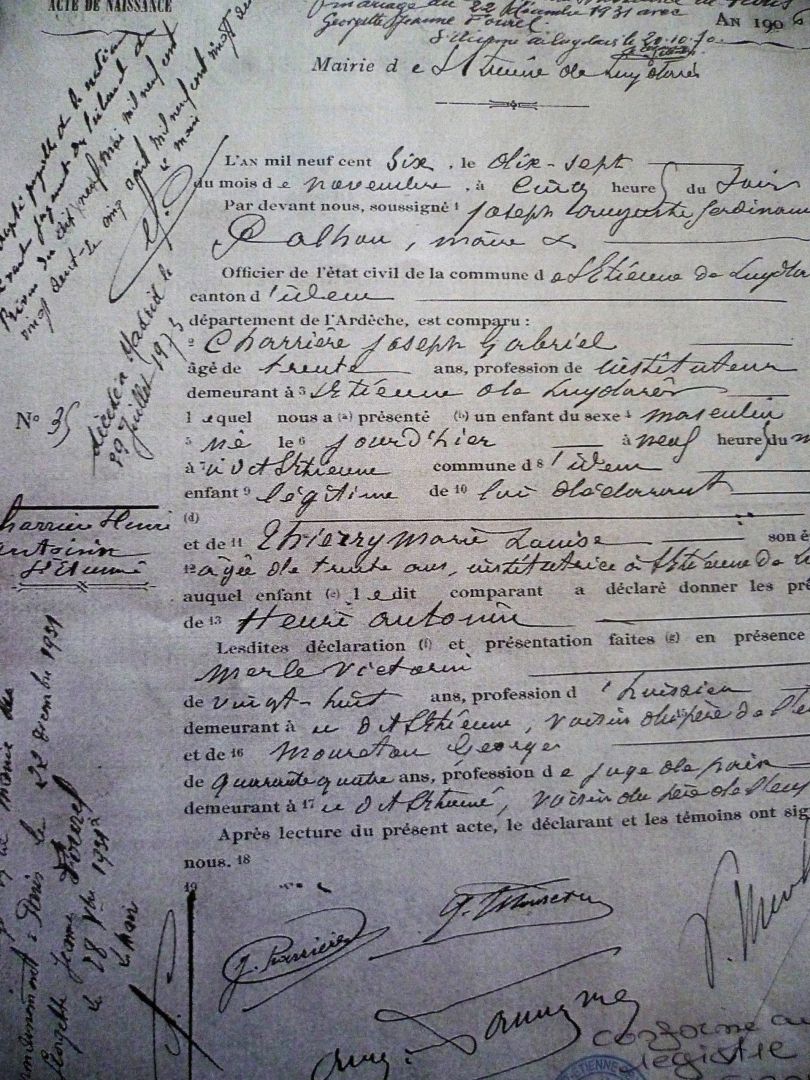 ACTE DE NAISSANCE
mariage du 22 décembre 1931 avec
Georgette Jeanne Fourel.
AN 1906
20.10.70
Mairie d e St Etienne de Lugdarès
L'AN mil neuf cent six, le dix-sept
du mois d e novembre, à cinq heures du soir
Par devant nous, soussigné 1 Joseph Auguste Ferdinand
maire &
Officier de l'état civil de la commune d e St Etienne de Lugda
canton d'idem
département de l'Ardèche, est comparu :
2 Charrière Joseph Gabriel
âgé de trente ans, profession de instituteur
demeurant à 3 St Etienne de Lugdarès
lequel nous a (a) présenté (b) un enfant du sexe 4 masculin
5 né le 6 jourd'hier à neuf heures du m
à 7 u d St Etienne commune d 8 'idem
enfant 9 légitime de 10 lui déclarant
(d)
et de 11 Thierry Marie Louise son é
12 âgée de trente ans, institutrice à St Etienne de L
auquel enfant (e) l edit comparant a déclaré donner les pré
de 13 Henri Antonin
Lesdites déclaration (f) et présentation faites (g) en présence
Merle Victorin
de vingt-huit ans, profession d 'huissier
demeurant à u d St Etienne, voisin du père de l'en
et de 16 Georges
de quarante quatre ans, profession d e juge de paix
demeurant à 17 u d St Etienne, voisin du père de l'en
Après lecture du présent acte, le déclarant et les témoins ont sig
nous. 18
19
J. Charrière
conforme au
registre
ETIENNE DE
No 35
décédé à Madrid le
29 Juillet 1973
Charrière Henri
Antonin
St Etienne
le maire
Paris le 22 décembre 1931
Georgette Jeanne Fourel
le 28 Xbre 1931
le maire